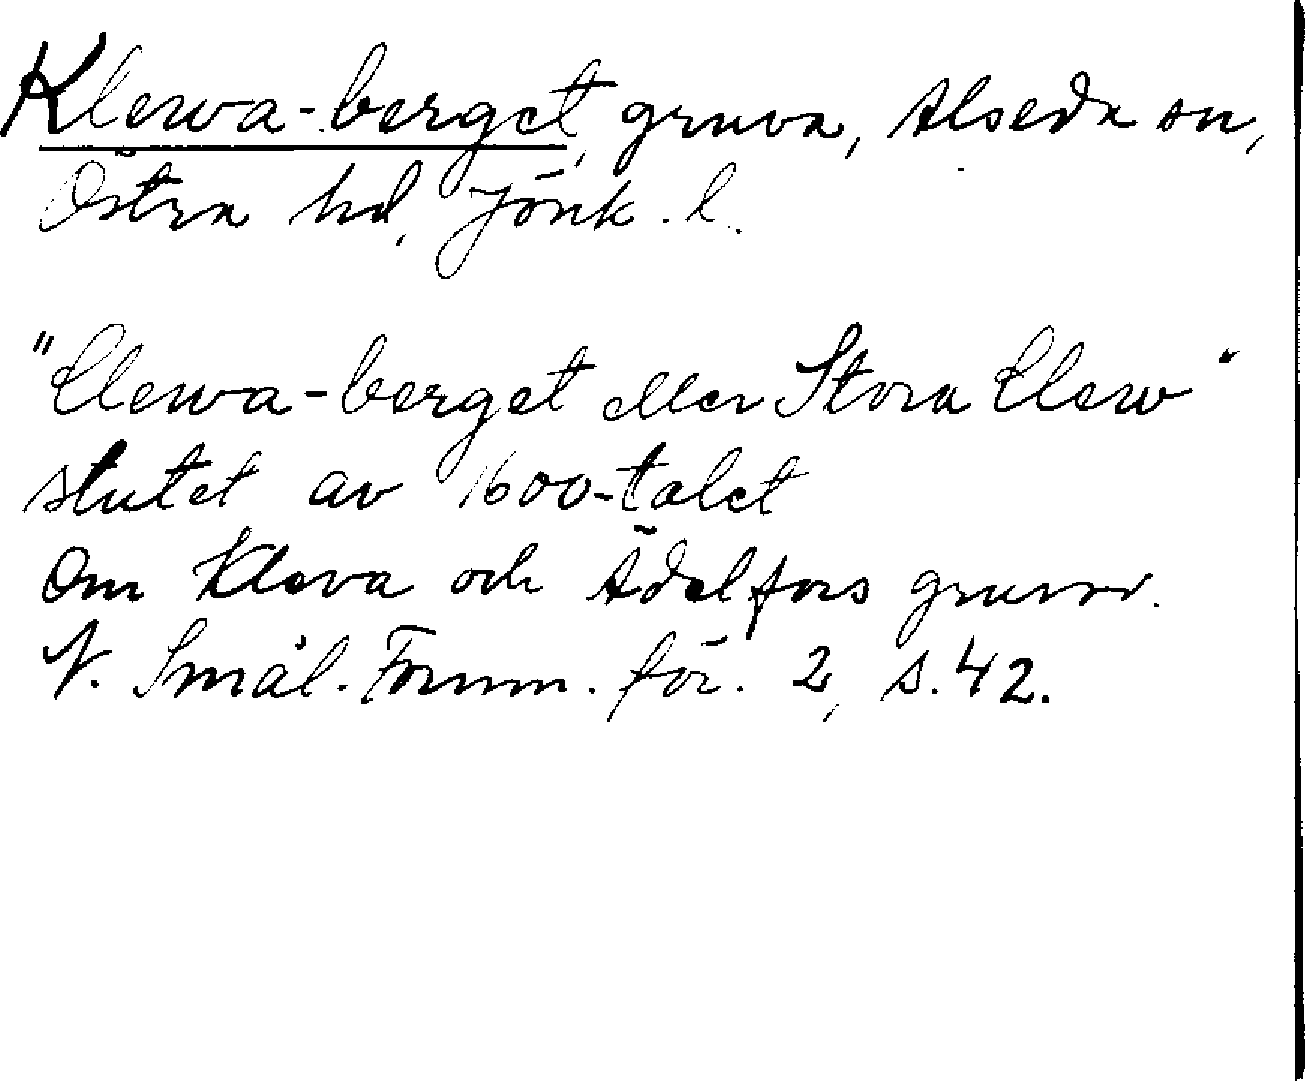 Klewa-berget, gruva, Alseda sn,
Östra hd, Jönk. l.
"Clewa-berget eller Stora Clew"
slutet av 1600-talet
Om Kleva och Ädelfors gruvor.
N. Smål. Fornm. för. 2, s. 42.